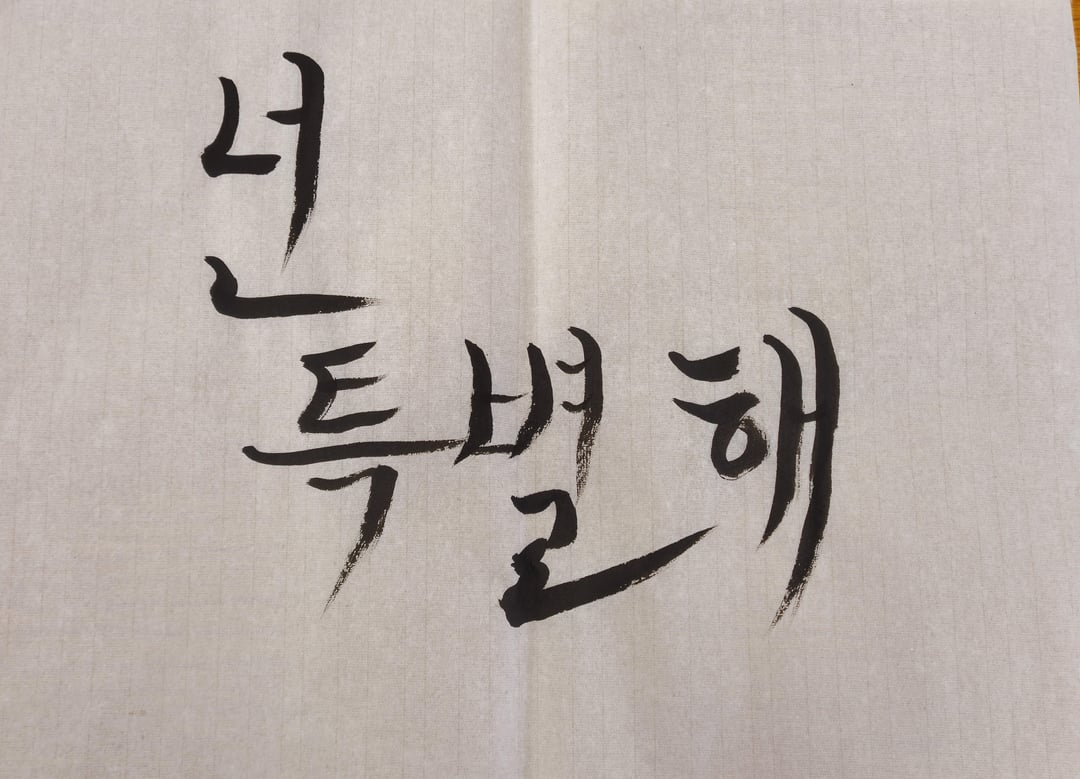 넌
특별해